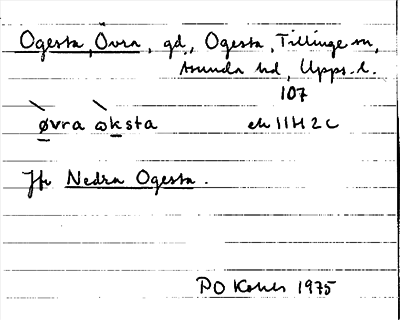 Ogesta, Övra, gd, Ogesta, Tillinge sn,
Asunda hd, Upps. l.
107
øvra ωksta ek 11H2c
Jfr Nedra Ogesta.
PO 1975